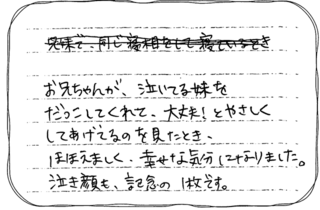 兄妹で、同じ寝相をして寝ているとき
お兄ちゃんが、泣いてる妹を
だっこしてくれて、大丈夫！とやさしく
してあげてるのを見たとき、
ほほえましく・幸せな気分になりました。
泣き顔も、記念の1枚です。